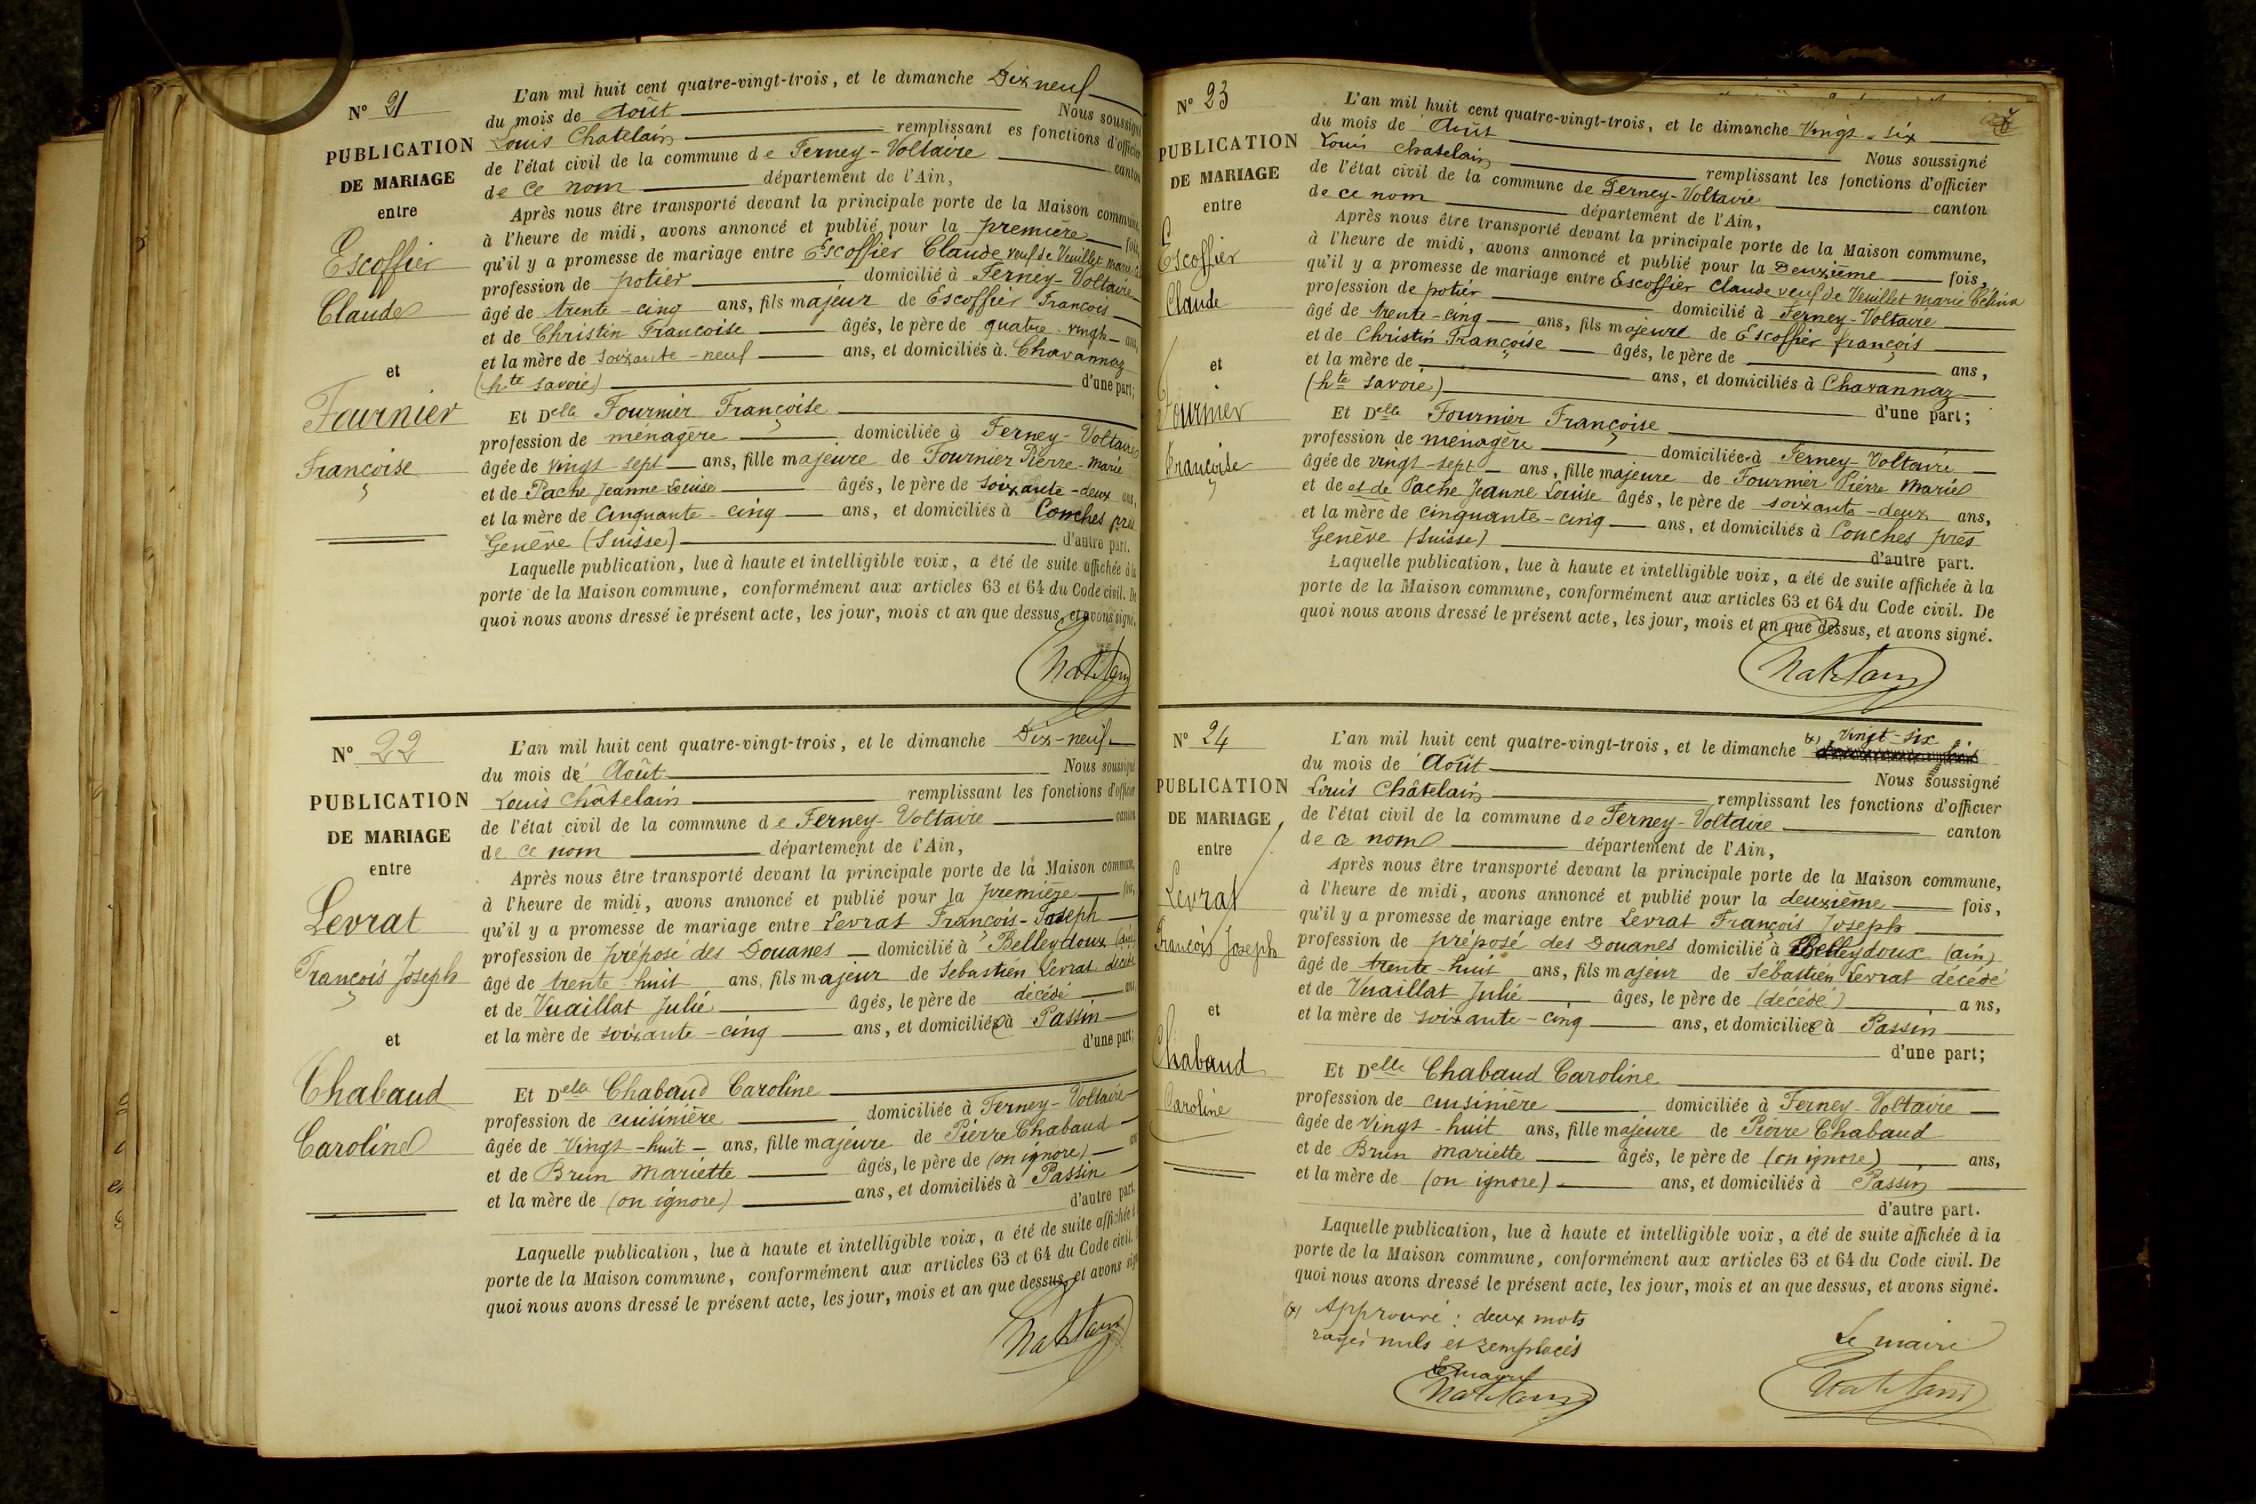 N° 21
PUBLICATION
DE MARIAGE
entre
Escoffier
Claude
et
Fournier
Françoise
L'an mil huit cent quatre-vingt-trois, et le dimanche Dix neuf
du mois de Août Nous soussigné
Louis Chatelain remplissant es fonctions d'officier
de l'état civil de la commune de Ferney-Voltaire canton
de ce nom département de l'Ain,
Après nous être transporté devant la principale porte de la Maison commune,
à l'heure de midi, avons annoncé et publié pour la première fois,
qu'il y a promesse de mariage entre Escoffier Claude veuf de Veuillet Marie
profession de potier domicilié à Ferney-Voltaire
âgé de trente-cinq ans, fils majeur de Escoffier François
et de Christin Françoise âgés, le père de quatre-vingts ans,
et la mère de soixante-neuf ans, et domiciliés à Chavannaz
(hte savoie) d'une part;
Et Delle Fournier Françoise
profession de ménagère domiciliée à Ferney-Voltaire
âgée de vingt-sept ans, fille majeure de Fournier Pierre-Marie
et de Pache Jeanne Louise âgés, le père de soixante-deux ans,
et la mère de Cinquante-cinq ans, et domiciliés à Conches près
Genève (Suisse) d'autre part.
Laquelle publication, lue à haute et intelligible voix, a été de suite affichée à la
porte de la Maison commune, conformément aux articles 63 et 64 du Code civil. De
quoi nous avons dressé le présent acte, les jour, mois et an que dessus, et avons signé.
N° 22
PUBLICATION
DE MARIAGE
entre
Levrat
François Joseph
et
Chabaud
Caroline
L'an mil huit cent quatre-vingt-trois, et le dimanche Dix-neuf
du mois de Août Nous soussigné
Louis Châtelain remplissant les fonctions d'officier
de l'état civil de la commune de Ferney-Voltaire canton
de ce nom département de l'Ain,
Après nous être transporté devant la principale porte de la Maison commune,
à l'heure de midi, avons annoncé et publié pour la première fois,
qu'il y a promesse de mariage entre Levrat François-Joseph
profession de préposé des Douanes domicilié à Belleydoux (ain)
âgé de trente-huit ans, fils majeur de Sebastien Levrat décédé
et de Vuaillat Julie âgés, le père de décédé ans,
et la mère de soixante-cinq ans, et domiciliée à Passin
d'une part;
Et Delle Chabaud Caroline
profession de cuisinière domiciliée à Ferney-Voltaire
âgée de Vingt-huit ans, fille majeure de Pierre Chabaud
et de Brun Mariette âgés, le père de (on ignore) ans
et la mère de (on ignore) ans, et domiciliés à Passin
d'autre part.
Laquelle publication, lue à haute et intelligible voix, a été de suite affichée à
porte de la Maison commune, conformément aux articles 63 et 64 du Code civil.
quoi nous avons dressé le présent acte, les jour, mois et an que dessus, et avons signé
N° 23
PUBLICATION
DE MARIAGE
entre
Escoffier
Claude
et
Fournier
Françoise
L'an mil huit cent quatre-vingt-trois, et le dimanche Vingt-six
du mois de Août Nous soussigné
Louis Chatelain remplissant les fonctions d'officier
de l'état civil de la commune de Ferney-Voltaire canton
de ce nom département de l'Ain,
Après nous être transporté devant la principale porte de la Maison commune,
à l'heure de midi, avons annoncé et publié pour la Deuxième fois,
qu'il y a promesse de mariage entre Escoffier Claude veuf de Veuillet Marie Célina
profession de potier domicilié à Ferney-Voltaire
âgé de trente-cinq ans, fils majeure de Escoffier françois
et de Christin Françoise âgés, le père de ans,
et la mère de ans, et domiciliés à Chavannaz
(hte Savoie) d'une part;
Et Delle Fournier Françoise
profession de ménagère domiciliée à Ferney-Voltaire
âgée de vingt-sept ans, fille majeure de Fournier Pierre Marie
et de et de Pache Jeanne Louise âgés, le père de soixante-deux ans,
et la mère de cinquante-cinq ans, et domiciliés à Conches près
Genève (Suisse) d'autre part.
Laquelle publication, lue à haute et intelligible voix, a été de suite affichée à la
porte de la Maison commune, conformément aux articles 63 et 64 du Code civil. De
quoi nous avons dressé le présent acte, les jour, mois et an que dessus, et avons signé.
N° 24
PUBLICATION
DE MARIAGE
entre
Levrat
François Joseph
et
Chabaud
Caroline
L'an mil huit cent quatre-vingt-trois, et le dimanche (x) Vingt-six
du mois de Août Nous soussigné
Louis Châtelain remplissant les fonctions d'officier
de l'état civil de la commune de Ferney-Voltaire canton
de ce nom département de l'Ain,
Après nous être transporté devant la principale porte de la Maison commune,
à l'heure de midi, avons annoncé et publié pour la deuxième fois,
qu'il y a promesse de mariage entre Levrat François Joseph
profession de préposé des Douanes domicilié à Belleydoux (ain)
âgé de trente-huit ans, fils majeur de Sébastien Levrat décédé
et de Vuaillat Julie âges, le père de (décédé) ans,
et la mère de soixante-cinq ans, et domiciliée à Passin
d'une part;
Et Delle Chabaud Caroline
profession de cuisinière domiciliée à Ferney-Voltaire
âgée de Vingt-huit ans, fille majeure de Pierre Chabaud
et de Brun Mariette âgés, le père de (on ignore) ans,
et la mère de (on ignore) ans, et domiciliés à Passin
d'autre part.
Laquelle publication, lue à haute et intelligible voix, a été de suite affichée à la
porte de la Maison commune, conformément aux articles 63 et 64 du Code civil. De
quoi nous avons dressé le présent acte, les jour, mois et an que dessus, et avons signé.
(x) Approuvé : deux mots
rayés nuls et remplacés
Le maire
Le maire